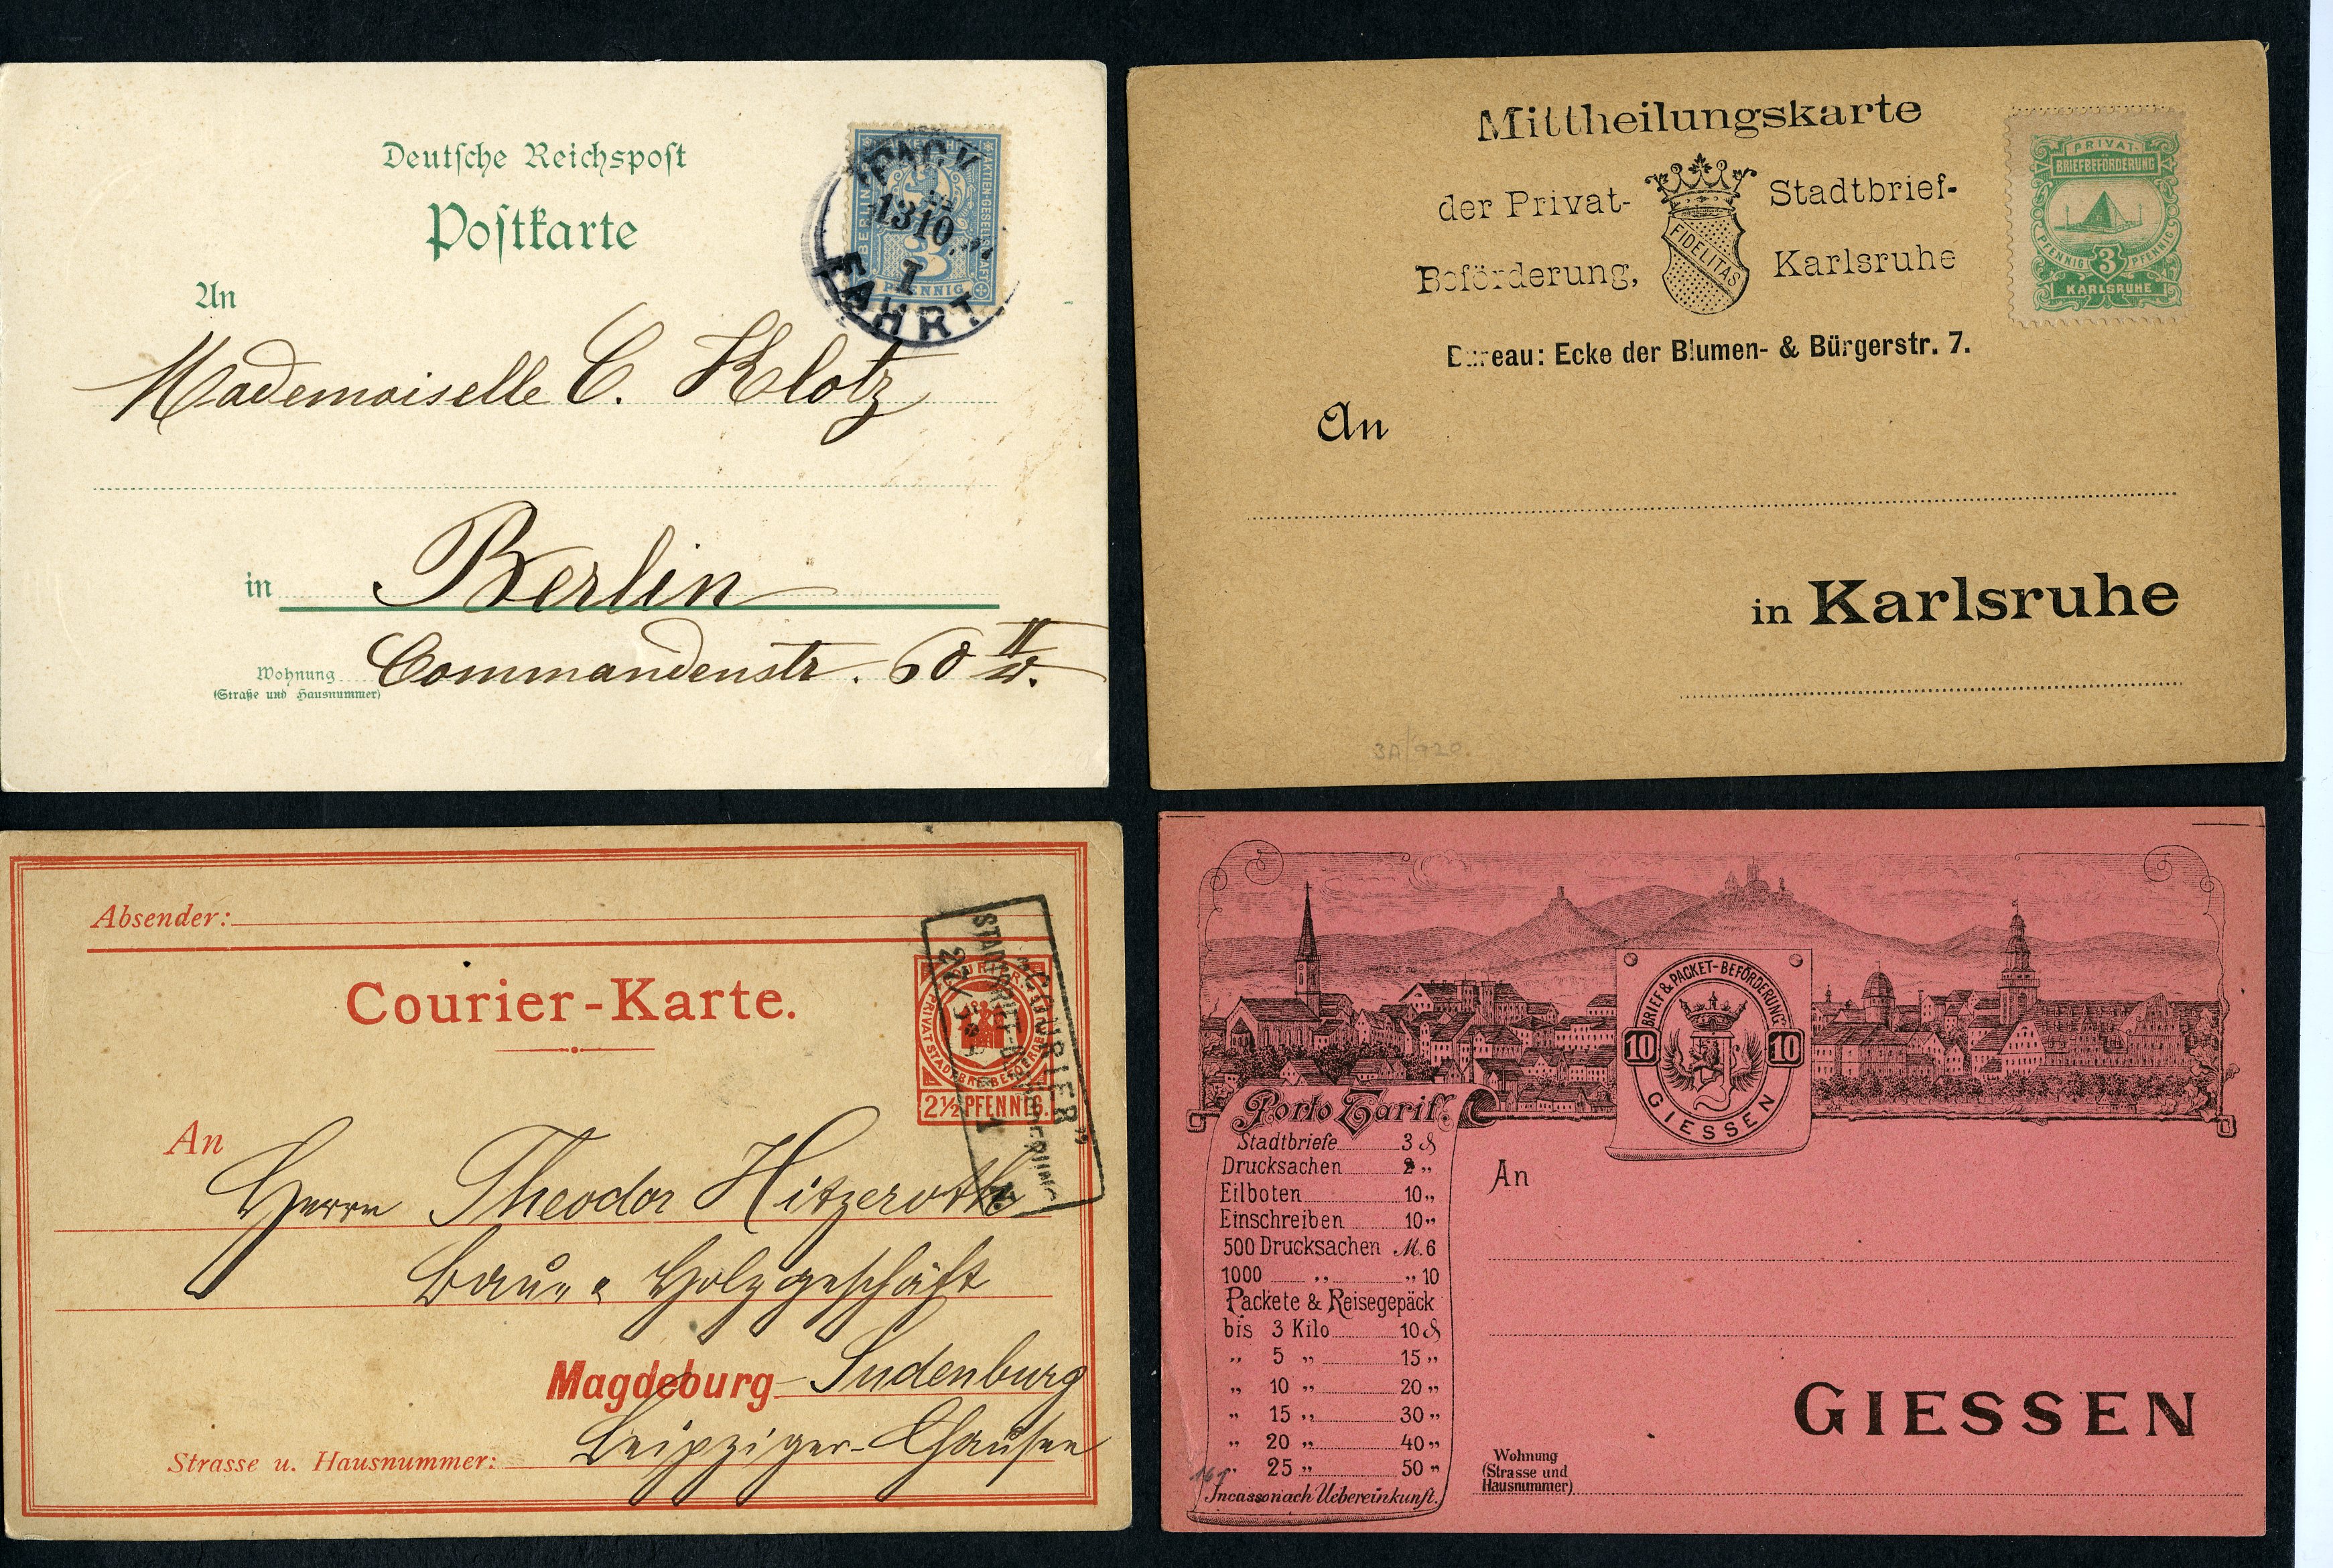 Deutsche Reichspost
Postkarte
PACK
1310
I
FAHRT
BERLIN
AKTIEN-GESELLSCHAFT
3
PFENNIG
An
Mademoiselle C. Klotz
in Berlin
Wohnung Commandenstr. 60 II
(Straße und Hausnummer)
Mittheilungskarte
der Privat- Stadtbrief-
Beförderung, Karlsruhe
FIDELITAS
Bureau: Ecke der Blumen- & Bürgerstr. 7.
PRIVAT-
BRIEFBEFÖRDERUNG
PFENNIG 3 PFENNIG
KARLSRUHE
An
in Karlsruhe
3A/920.
Absender:
Courier-Karte.
COURIER
PRIVAT STADTBRIEFBEFOERDERUNG
2½ PFENNIG.
"COURIER"
STADTBRIEF-BEFÖRDERUNG
An
Herrn Theodor Hitzeroth
Bau- u. Holzgeschäft
Magdeburg-Sudenburg
Strasse u. Hausnummer: Leipziger-Chaussee
BRIEF & PACKET-BEFÖRDERUNG
10 10
GIESSEN
Porto Tarif.
Stadtbriefe 3 ₰
Drucksachen 2 „
Eilboten 10 „
Einschreiben 10 „
500 Drucksachen M. 6
1000 „ „ 10
Packete & Reisegepäck
bis 3 Kilo 10 ₰
„ 5 „ 15 „
„ 10 „ 20 „
„ 15 „ 30 „
„ 20 „ 40 „
„ 25 „ 50 „
Incasso nach Uebereinkunft.
An
GIESSEN
Wohnung
(Strasse und
Hausnummer)